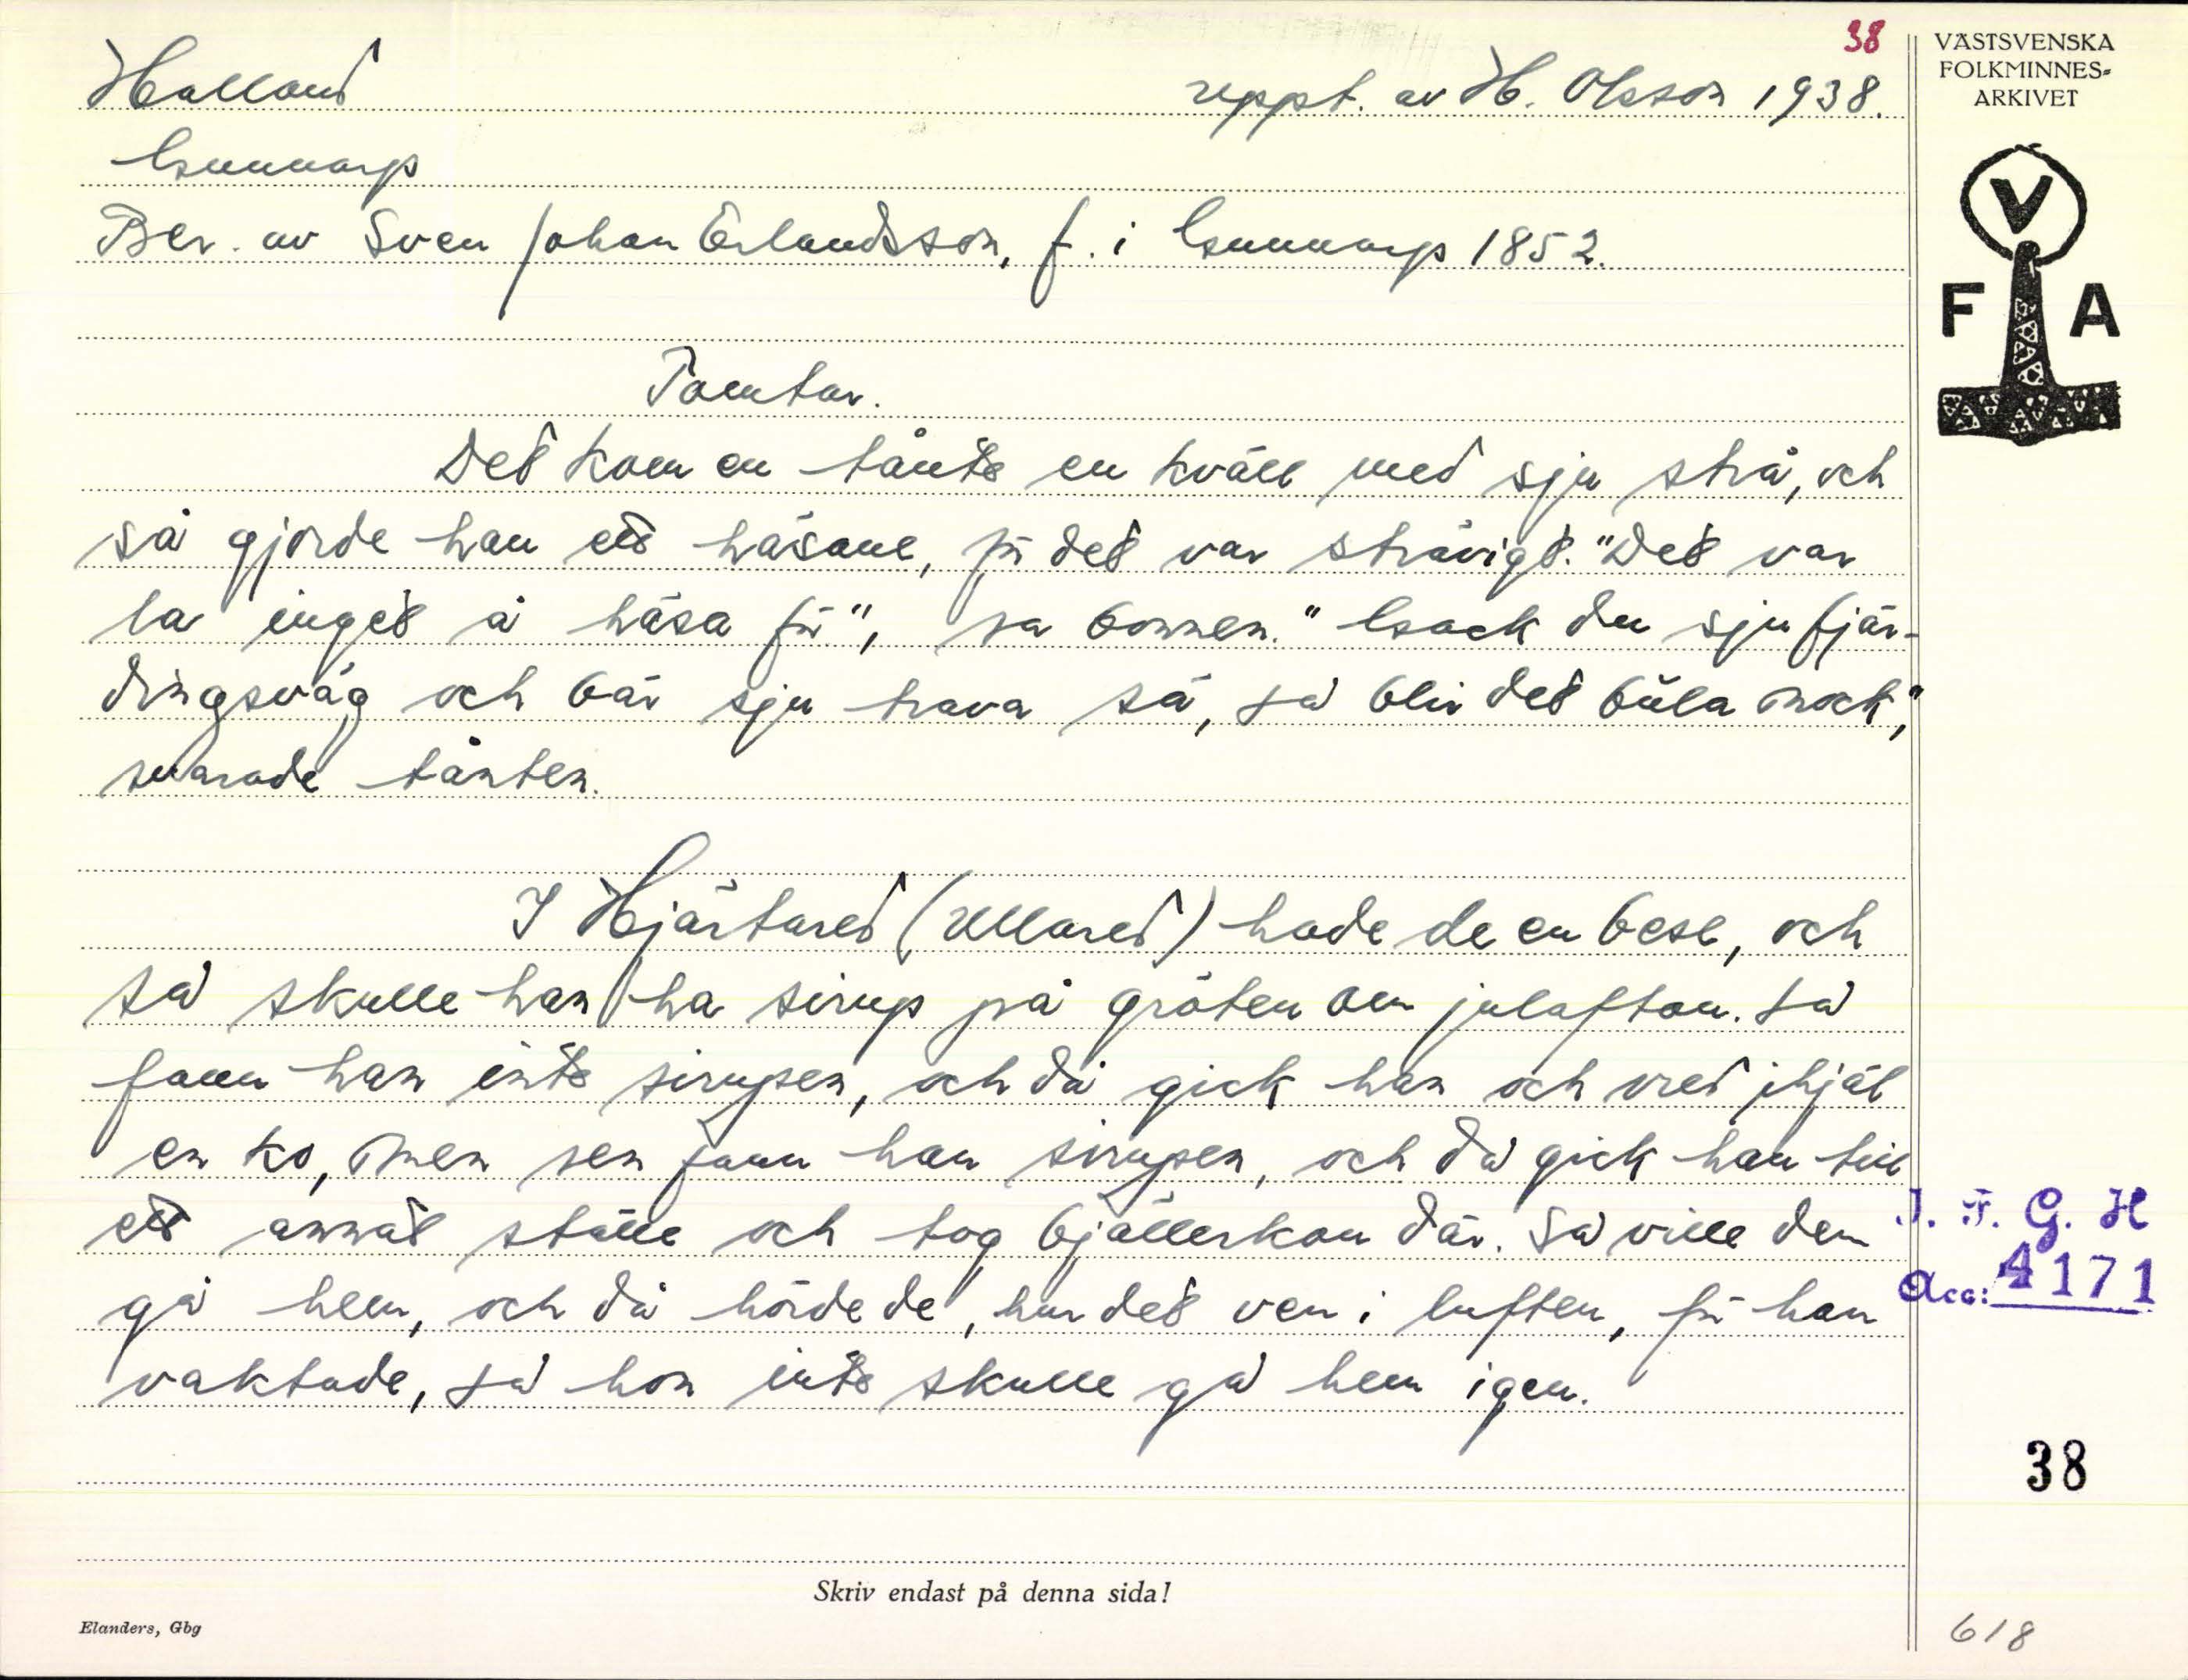 38
VÄSTSVENSKA
FOLKMINNES-
ARKIVET
Halland uppt. av H. Olsson 1938.
Gunnarp
Ber. av Sven Johan Erlandsson, f. i Gunnarp 1852.
V
F A
Tomtar.
Det kom en tånte en kväll med sju strå, och
så gjorde han ett häsane, för det var strävigt. "Det var
la inget å häsa för", sa bonnen. "Gack du sju fjär-
dingsväg och bär sju trava sä, så blir det båla nock,"
svarade tånten.
I Hjärtared (Ullared) hade de en bese, och
så skulle han ha sirup på gröten om julafton. Så
fann han inte sirupen, och då gick han och vred ihjäl
en ko, men sen fann han sirupen, och då gick han till
ett annat ställe och tog bjällerkon där. Så ville den
gå hem, och då hörde de, hur det ven i luften, för han
vaktade, så hon inte skulle gå hem igen.
I. F. G. H
Acc: 4171
38
Skriv endast på denna sida!
Elanders, Gbg
618